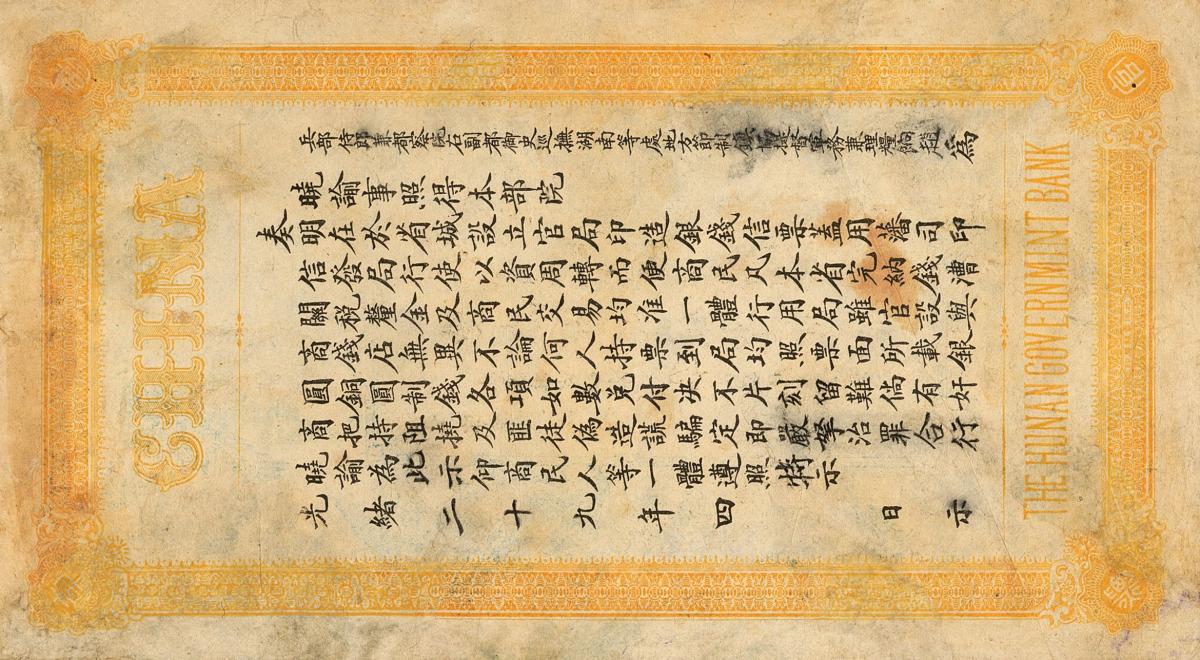 兵部侍郎兼都察院右副都御史巡撫湖南等處地方節制鎮提督軍務兼理糧餉趙為
曉諭事照得本部院
奏明在於省城設立官局印造銀錢信票蓋用藩司印
信發局行使以資周轉而便商民凡本省完納錢漕
關税釐金及商民交易均准一體行用局雖官設與
商錢店無異不論何人持票到局均照票面所載銀
圓銅圓制錢各項如數兌付决不片刻留難倘有奸
商把持阻撓及匪徒偽造謊騙定即嚴拏治罪合行
曉諭為此示仰商民人等一體遵照特示
光緒二十九年四 日示
CHINA
THE HUNAN GOVERNMENT BANK